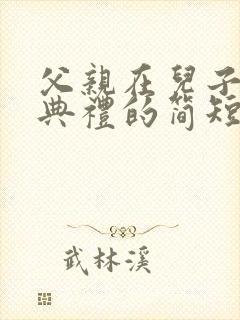 父親在兒子
典禮的簡短
武林溪